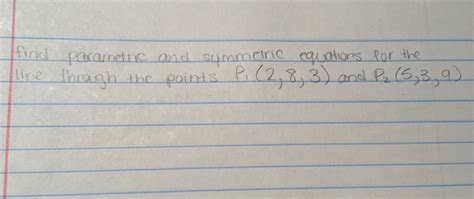 find parametric and symmetric equations for the
line through the points P₁ (2,8,3) and P₂ (5,3,9)